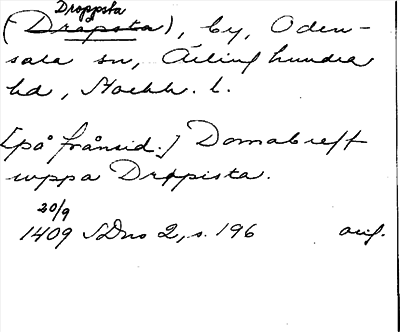 Droppsta
(Dropsta), by, Oden-
sala sn, Ärlinghundra
hd, Stockh. l.
[på frånsid.] Domabreff
uppa Dropista.
30/9
1409 SDns 2, s. 196 orig.